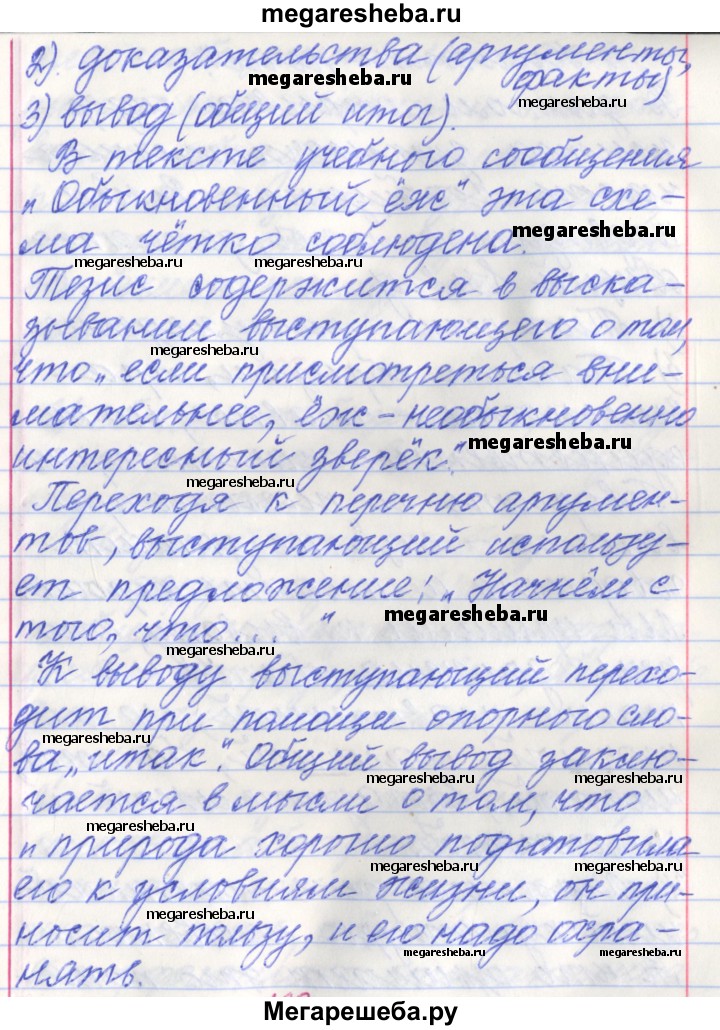 megaresheba.ru
2). доказательства (аргументы,
megaresheba.ru
факты)
megaresheba.ru
3) вывод (общий итог).
В тексте учебного сообщения
„Обыкновенный ёж" эта схе-
megaresheba.ru
ма чётко соблюдена.
megaresheba.ru megaresheba.ru
Тезис содержится в выска-
зывании выступающего о том,
megaresheba.ru
что „если присмотреться вни-
мательнее, ёж – необыкновенно
megaresheba.ru
интересный зверёк."
megaresheba.ru
Переходя к перечню аргумен-
тов, выступающий использу-
ет предложение: „Начнём с
megaresheba.ru
того, что... "
megaresheba.ru
К выводу выступающий перехо-
дит при помощи опорного сло-
megaresheba.ru
ва „итак". Общий вывод заклю-
megaresheba.ru megaresheba.ru
чается в мысли о том, что
megaresheba.ru
„природа хорошо подготовила
megaresheba.ru megaresheba.ru
его к условиям жизни, он при-
megaresheba.ru
носит пользу, и его надо охра-
megaresheba.ru megaresheba.ru
нять.
Мегарешеба.ру